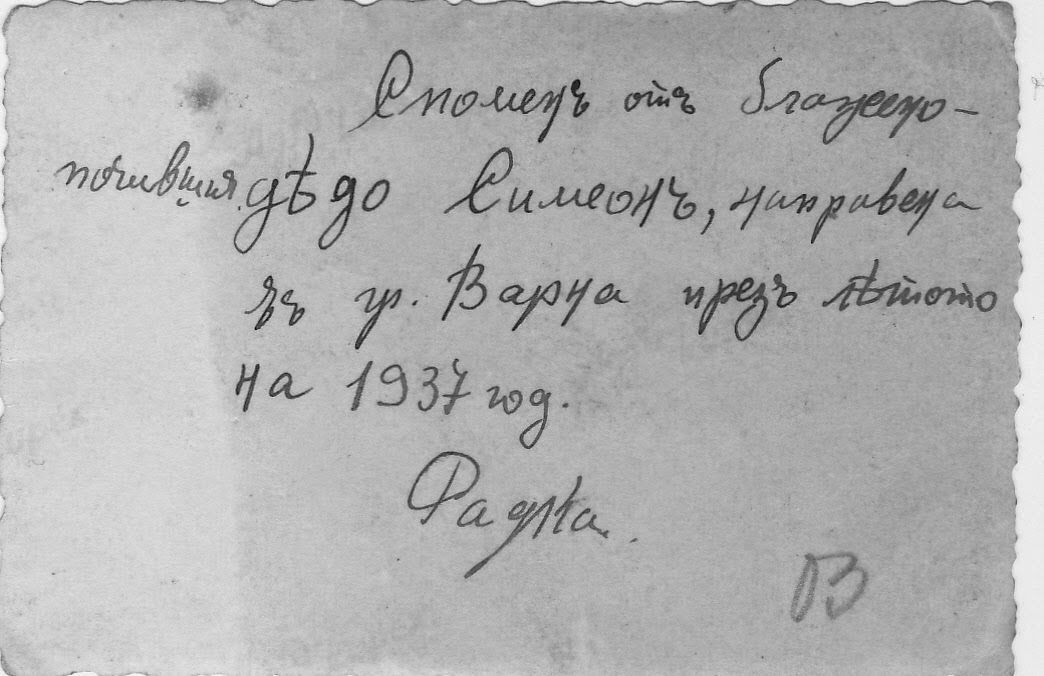 Споменъ отъ блажено-
починвшия дѣдо Симеонъ, направена
въ гр. Варна презъ лѣтото
на 1937 год.
Радка.